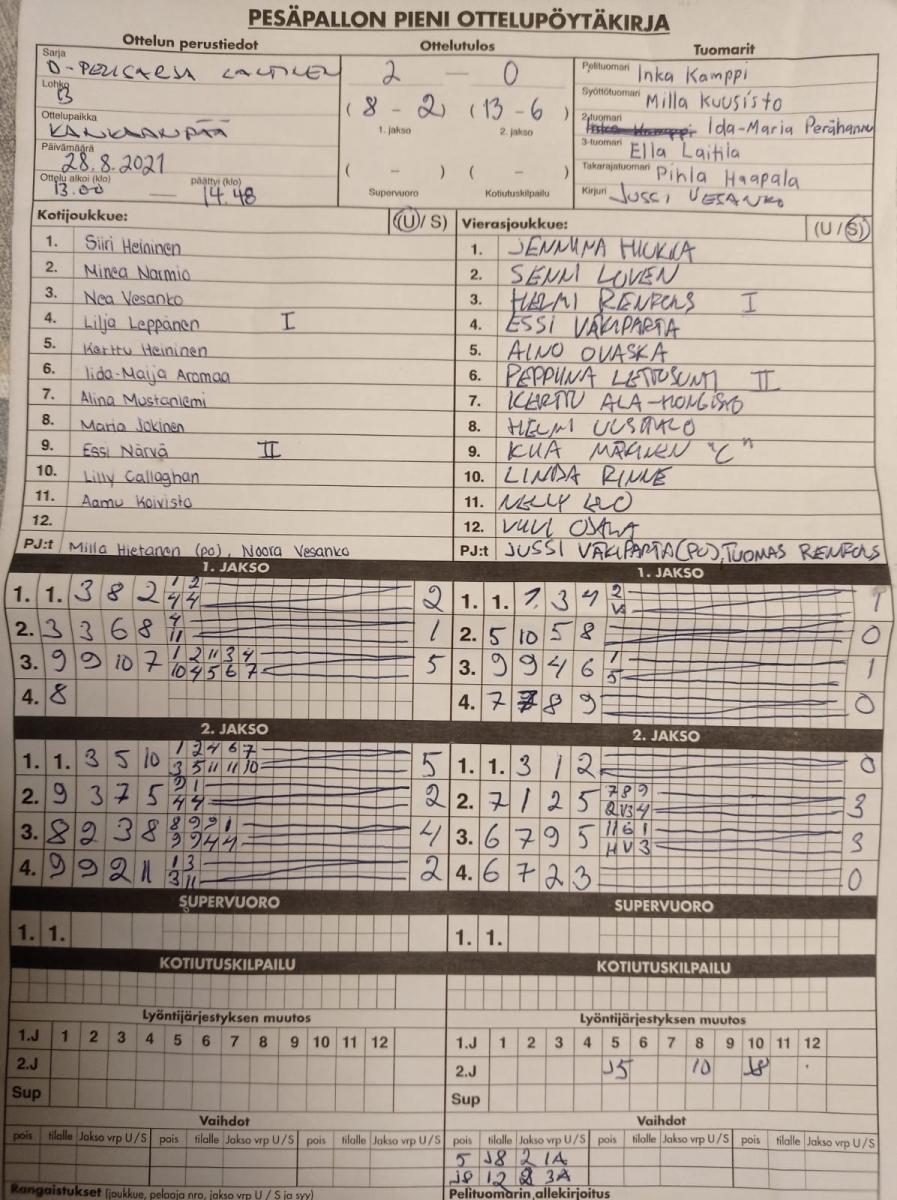 PESÄPALLON PIENI OTTELUPÖYTÄKIRJA
Ottelun perustiedot Ottelutulos Tuomarit
Sarja
Lohko B
Ottelupaikka KANKAANPÄÄ
Päivämäärä 28.8.2021
Ottelu alkoi (klo) 13.00 — päättyi (klo) 14.48
2 — 0
(8 - 2) (13 - 6)
1. jakso 2. jakso
( - ) ( - )
Supervuoro Kotiutuskilpailu
Pelituomari Inka Kamppi
Syöttötuomari Milla Kuusisto
2-tuomari Inka Kamppi Ida-Maria Perähannu
3-tuomari Ella Laitila
Takarajatuomari Pihla Haapala
Kirjuri JUSSI VESANKO
Kotijoukkue: (U / S) Vierasjoukkue: (U / S)
1. Siiri Heininen 1. JENNIINA HIUKKA
2. Minea Narmio 2. SENNI LOVEN
3. Nea Vesanko 3. HELMI RENFORS I
4. Lilja Leppänen I 4. ESSI VÄKIPARTA
5. Kerttu Heininen 5. AINO OVASKA
6. Iida-Maija Aromaa 6. II
7. Alina Mustaniemi 7. KERTTU ALA-HONGISTO
8. Maria Jokinen 8. HELMI UUSITALO
9. Essi Närvä II 9. MÄKINEN "C"
10. Lilly Callaghan 10. LINDA RINNE
11. Aamu Koivisto 11. NELLY LEO
12. 12. VUVI OJALA
PJ:t Milla Hietanen (po), Noora Vesanko PJ:t JUSSI VÄKIPARTA (PO), TUOMAS RENFORS
1. JAKSO 1. JAKSO
1. 1. 3 8 2 1 2 4 4 2 1. 1. 1. 3 4 2 1
2. 3 3 6 8 4 11 1 2. 5 10 5 8 0
3. 9 9 10 7 1 2 11 3 4 10 4 5 6 7 5 3. 9 9 4 6 1 5 1
4. 8 4. 7 8 9 0
2. JAKSO 2. JAKSO
1. 1. 3 5 10 1 2 4 6 7 3 5 11 11 10 5 1. 1. 3 1 2 0
2. 9 3 7 5 9 1 4 4 2 2. 7 1 2 5 7 8 9 3
3. 8 2 3 8 8 9 9 1 9 9 4 4 4 3. 6 7 9 5 11 6 1 H V 3 3
4. 9 9 2 11 1 3 3 11 2 4. 6 7 2 3 0
SUPERVUORO SUPERVUORO
1. 1. 1. 1.
KOTIUTUSKILPAILU KOTIUTUSKILPAILU
Lyöntijärjestyksen muutos Lyöntijärjestyksen muutos
1.J 1 2 3 4 5 6 7 8 9 10 11 12 1.J 1 2 3 4 5 6 7 8 9 10 11 12
2.J 2.J J5 10 J8
Sup Sup
Vaihdot Vaihdot
pois tilalle Jakso vrp U / S pois tilalle Jakso vrp U / S pois tilalle Jakso vrp U / S pois tilalle Jakso vrp U / S pois tilalle Jakso vrp U / S pois tilalle Jakso vrp U / S
5 J8 2 1A
J8 12 2 3A
Rangaistukset (joukkue, pelaaja nro, jakso vrp U / S ja syy) Pelituomarin allekirjoitus